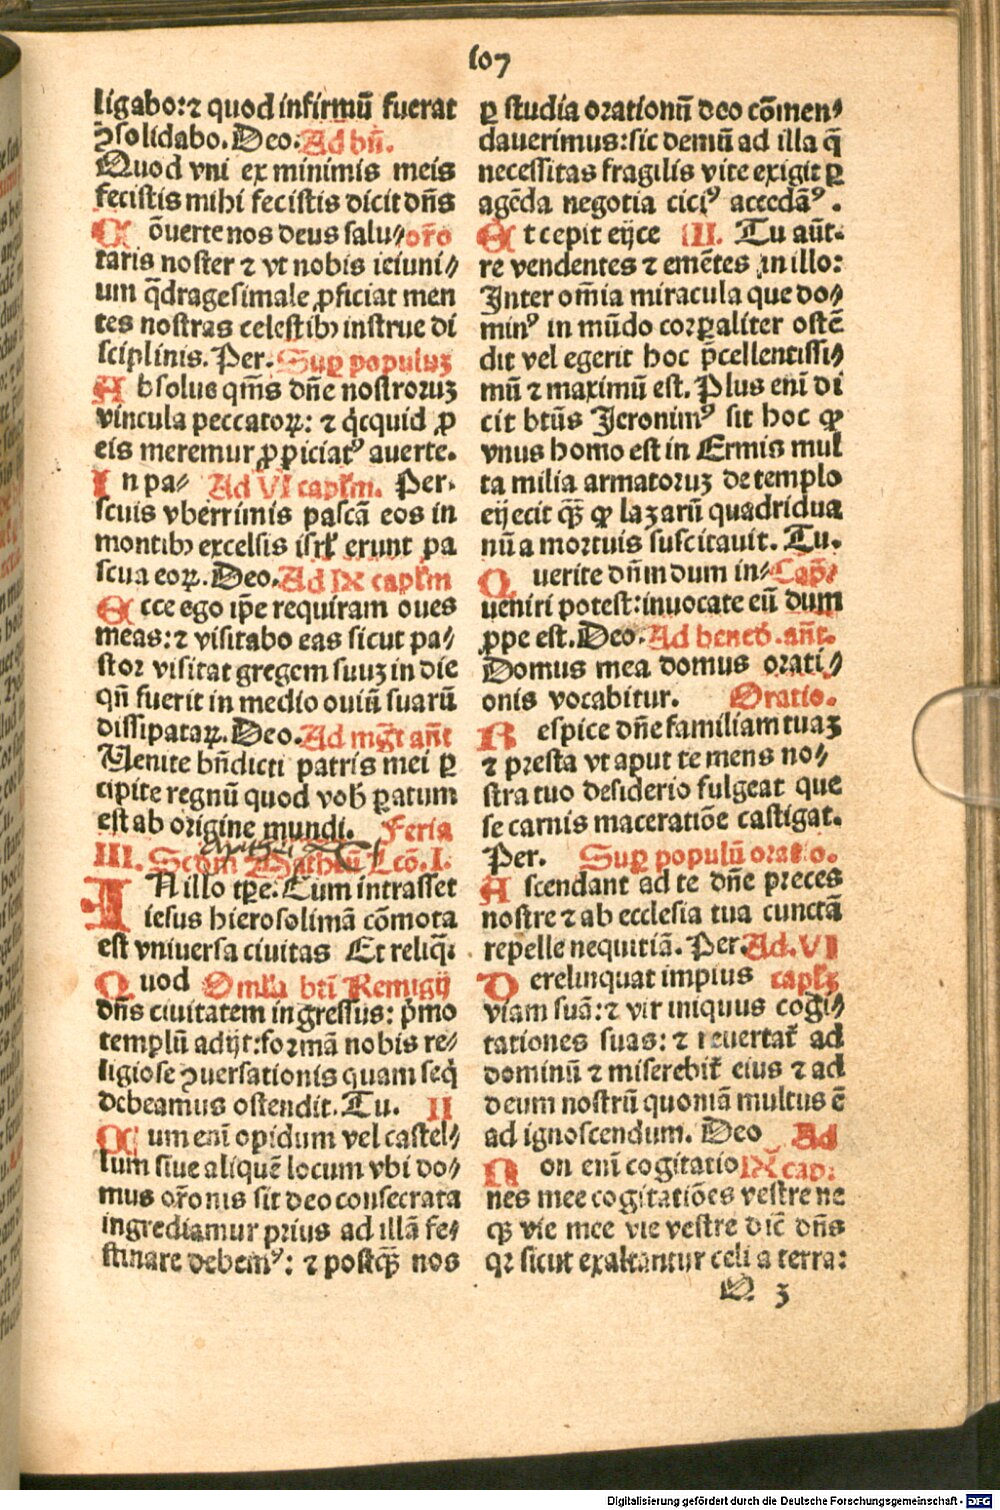 107
ligabo: ⁊ quod infirmū fuerat
ꝯsolidabo. Deo. Ad bñ.
Quod vni ex minimis meis
fecistis mihi fecistis dicit dñs
Cōuerte nos deus salu⸗ orō
taris noster ⁊ vt nobis ieiuni⸗
um q̄dragesimale ꝓficiat men
tes nostras celestibꝫ instrue di
sciplinis. Per. Suꝑ populuꝫ
Absolue qm̄s dñe nostroruꝫ
vincula peccatoꝝ: ⁊ q̇cquid ꝓ
eis meremur ꝓpiciatꝰ auerte.
In pa⸗ Ad VI capl̄m. Per.
scuis vberrimis pascā eos in
montibꝫ excelsis isrl̄ erunt pa
scua eoꝝ. Deo. Ad IX capl̄m
Ecce ego ip̄e requiram oues
meas: ⁊ visitabo eas sicut pa⸗
stor visitat gregem suuꝫ in die
qn̄ fuerit in medio ouiū suarū
dissipataꝝ. Deo. Ad mḡt añt
Uenite bn̄dicti patris mei ꝑ
cipite regnū quod vob̄ ꝑatum
est ab origine mundi. Feria
III. Scdm Matheū Lcō. I.
IN illo tꝑe. Cum intrasset
iesus hierosolimā cōmota
est vniuersa ciuitas Et reliq̄.
Quod Omīla bt̄i Remigij
dñs ciuitatem ingressus: pͥmo
templū adijt: formā nobis re⸗
ligiose ꝯuersationis quam seq̇
debeamus ostendit. Tu. II
Cum enī opidum vel castel⸗
lum siue aliquē locum vbi do⸗
mus or̄onis sit deo consecrata
ingrediamur prius ad illā fe⸗
stinare debemꝰ: ⁊ postqꝫ̄ nos
ꝑ studia orationū deo cōmen⸗
dauerimus: sic demū ad illa q̄
necessitas fragilis vite exigit ꝑ
agēda negotia cicꝰ accedāꝰ.
Et cepit eijce III. Tu aūt.
re vendentes ⁊ emētes in illo:
Inter om̄ia miracula que do⸗
minꝰ in mūdo corꝑaliter ostē
dit vel egerit hoc p̄cellentissi⸗
mū ⁊ maximū est. Plus enī di
cit btūs Jeronimꝰ sit hoc ꝙ
vnus homo est in Ermis mul
ta milia armatoruꝫ de templo
eijecit qꝫ̄ ꝙ lazarū quadridua
nū a mortuis suscitauit. Tu.
Querite dñm dum in⸗ Cap̄.
ueniri potest: inuocate eū dum
ꝓpe est. Deo. Ad bened. añt.
Domus mea domus orati⸗
onis vocabitur. Oratio.
Respice dñe familiam tuaꝫ
⁊ presta vt aput te mens no⸗
stra tuo desiderio fulgeat que
se carnis maceratiōe castigat.
Per. Suꝑ populū oratio.
Ascendant ad te dñe preces
nostre ⁊ ab ecclesia tua cunctā
repelle nequitiā. Per. Ad. VI
Derelinquat impius capl̄ꝫ
viam suā: ⁊ vir iniquus cogi⸗
tationes suas: ⁊ reuertat̄ ad
dominū ⁊ miserebit̄ eius ⁊ ad
deum nostrū quoniā multus ē
ad ignoscendum. Deo Ad
Non enī cogitatio IX cap.
nes mee cogitatiōes vestre ne
qꝫ vie mee vie vestre dic̄ dñs
qꝛ sicut exaltantur celi a terra:
O. 3
Digitalisierung gefördert durch die Deutsche Forschungsgemeinschaft - DFG